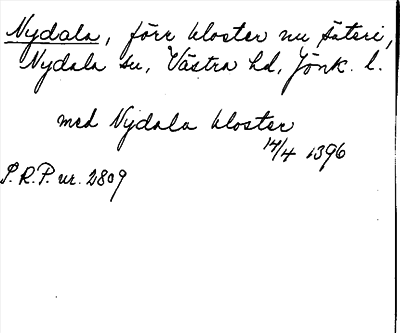 Nydala, förr kloster nu säteri,
Nydala sn, Västra hd, Jönk. l.
med Nydala kloster
14/4 1396
S.R.P. nr. 2809